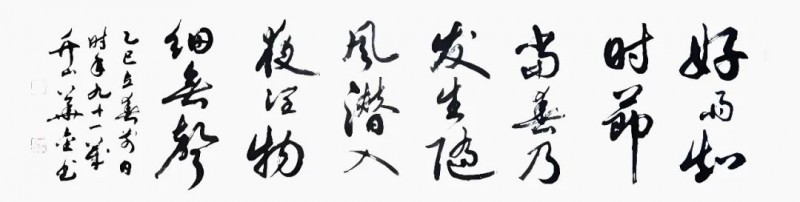 好雨知
时节
当春乃
发生随
风潜入
夜润物
细无声
乙巳立春前日
时年九十一岁
山 书